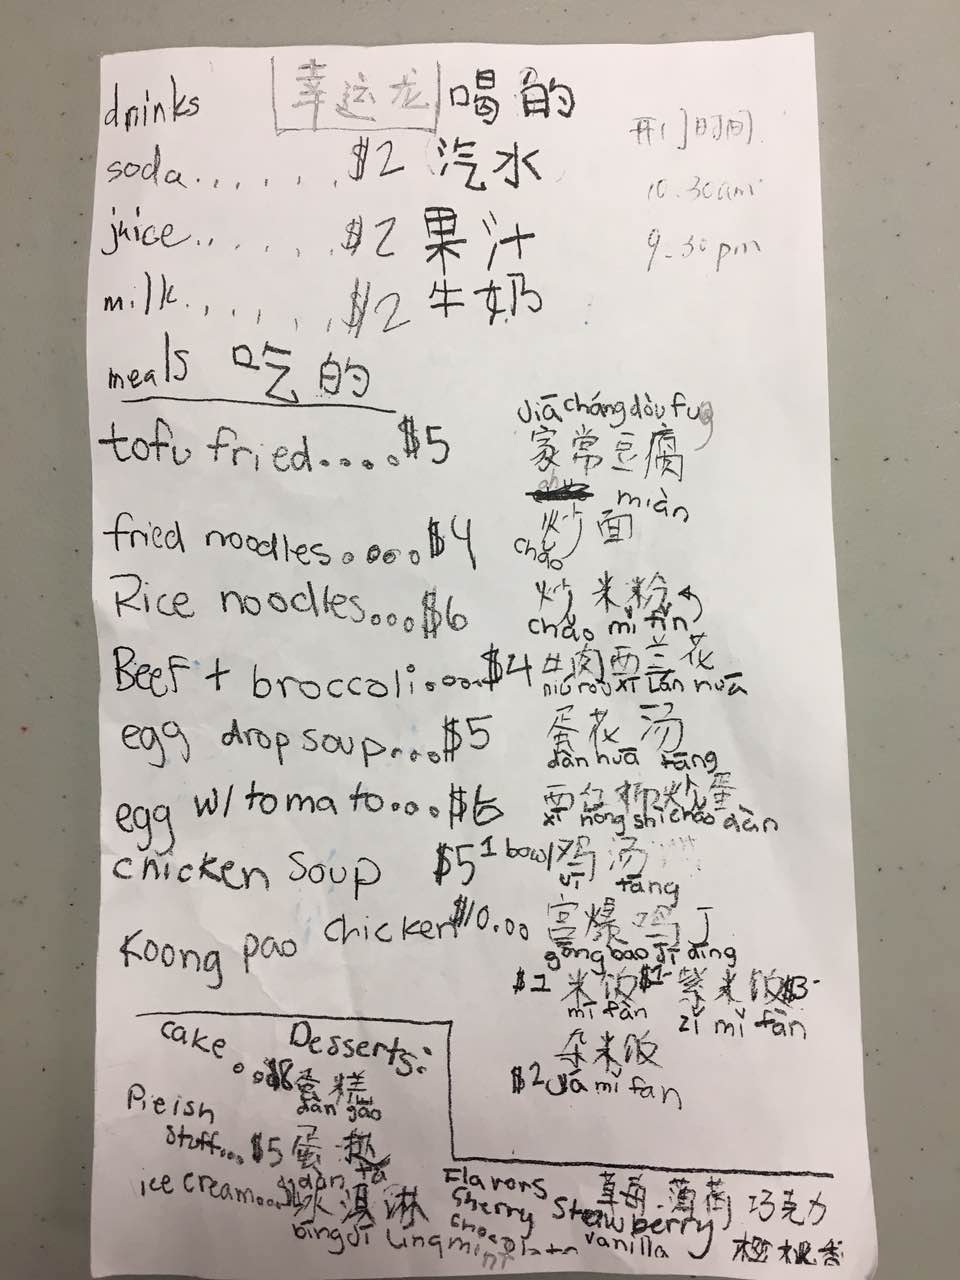 drinks 幸运龙 喝的
开门时间
soda...... $2 汽水
10.30am
juice...... $2 果汁
9.30pm
milk...... $2 牛奶
meals 吃的
jiā cháng dòu fu
tofu fried....$5 家常豆腐
miàn
fried noodles.....$4 炒面
chǎo
Rice noodles...$6 炒米粉
chǎo mǐ fěn
Beef + broccoli....$4 牛肉西兰花
niú ròu xī lán huā
egg drop soup...$5 蛋花汤
dàn huā tāng
egg w/ tomato...$6 西红柿炒蛋
xī hóng shì chǎo dàn
chicken soup $5 1 bowl 鸡汤
jī tāng
Koong pao chicken $10.00 宫爆鸡丁
gōng bao jī dīng
$1 米饭 $1 紫米饭 $3
mǐ fàn zǐ mǐ fàn
杂米饭
$2 zá mǐ fan
Desserts:
cake...$8 蛋糕
dàn gāo
Pieish
stuff...$5 蛋挞
dàn tà
ice cream... 冰淇淋
bīng qí lín
Flavors 草莓 薄荷 巧克力
Sherry Strawberry
mint vanilla 樱桃香